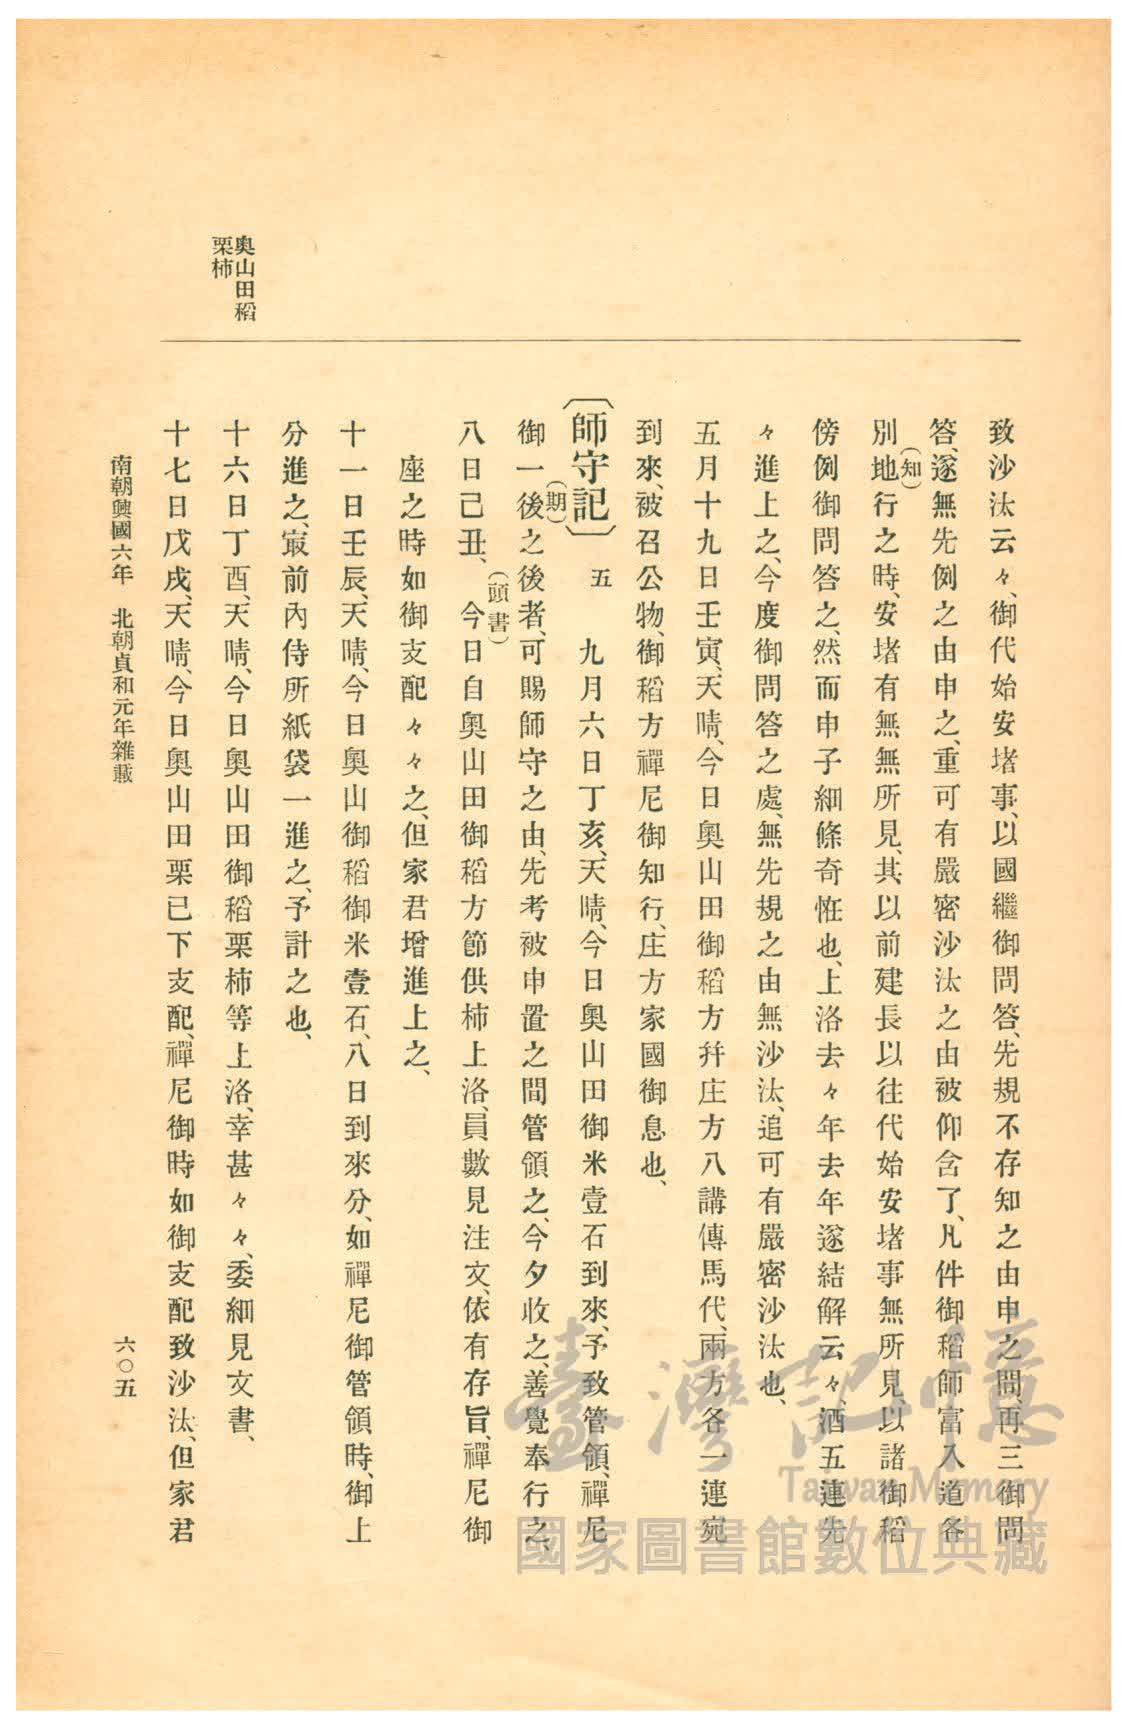 奧山田稻
栗柿
致沙汰云々、御代始安堵事、以國繼御問答、先規不存知之由申之間、再三御問
答、遂無先例之由申之、重可有嚴密沙汰之由被仰含了、凡件御稻師富入道各
別地(知)行之時、安堵有無無所見、其以前建長以往代始安堵事無所見、以諸御稻
傍例御問答之、然而申子細條奇恠也、上洛去々年去年遂結解云々、酒五連先
々進上之、今度御問答之處、無先規之由無沙汰、追可有嚴密沙汰也、
五月十九日壬寅、天晴、今日奧山田御稻方幷庄方八講傳馬代、兩方各一連宛
到來、被召公物、御稻方禪尼御知行、庄方家國御息也、
〔師守記〕 五 九月六日丁亥、天晴、今日奧山田御米壹石到來、予致管領、禪尼
御一後(期)之後者、可賜師守之由、先考被申置之間管領之、今夕收之、善覺奉行之、
八日己丑、(頭書)今日自奧山田御稻方節供柿上洛、員數見注文、依有存旨、禪尼御
座之時如御支配々々之、但家君增進上之、
十一日壬辰、天晴、今日奧山御稻御米壹石、八日到來分、如禪尼御管領時、御上
分進之、㝡前內侍所紙袋一進之、予計之也、
十六日丁酉、天晴、今日奧山田御稻栗柿等上洛、幸甚々々、委細見文書、
十七日戊戌、天晴、今日奧山田栗已下支配、禪尼御時如御支配致沙汰、但家君
南朝興國六年 北朝貞和元年雜載
六〇五
臺灣記憶
Taiwan Memory
國家圖書館數位典藏